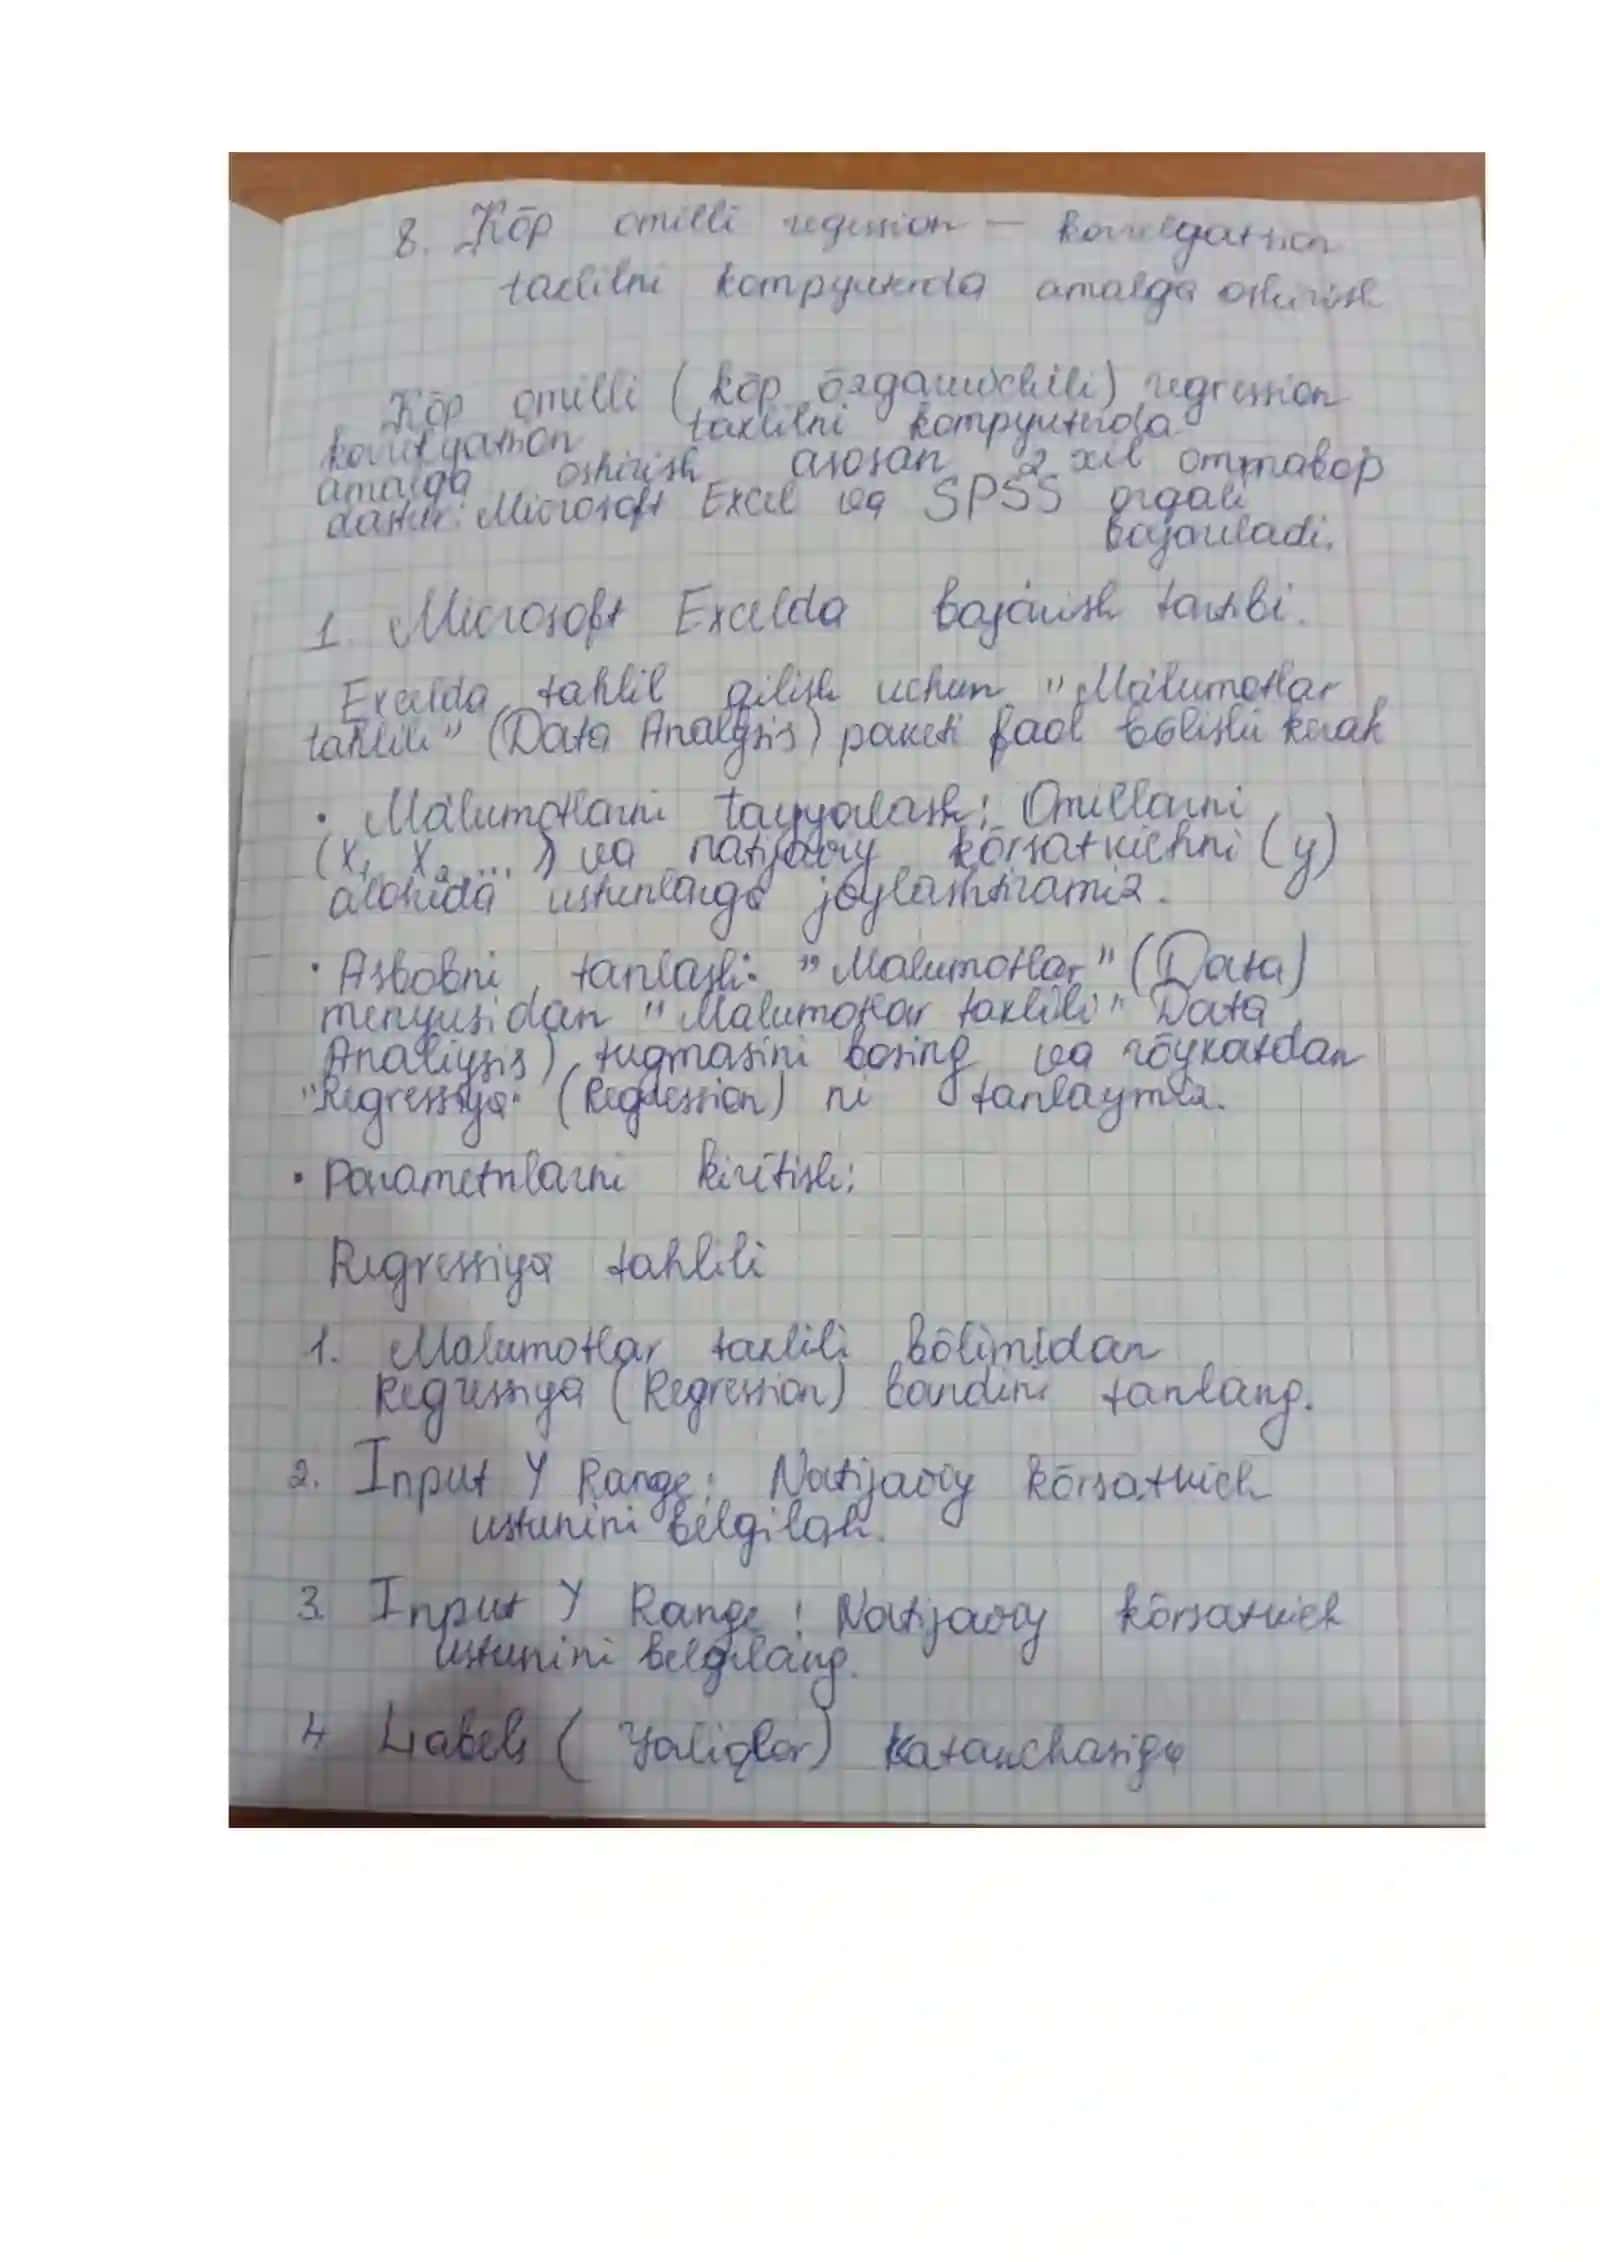 8. Kōp omilli regression – korrelyatsion
taxlilni kompyuterda amalga oshirish
Kōp omilli (kōp ōzgaruvchili) regression
korrelyatsion taxlilni kompyuterda
amalga oshirish asosan 2 xil ommabop
dastur: Microsoft Excel va SPSS orqali
bajariladi.
1. Microsoft Excelda bajarish tartibi.
Excelda tahlil qilish uchun "Ma'lumotlar
tahlili" (Data Analysis) paketi faol bōlishi kerak
• Ma'lumotlarni tayyorlash: Omillarni
(x₁, x₂, ... ) va natijaviy kōrsatkichni (y)
alohida ustunlarga joylashtiramiz.
• Asbobni tanlash: "Malumotlar" (Data)
menyusidan "Malumotlar taxlili" Data
Analiysis) tugmasini bosing va rōyxatdan
"Regressiya" (Regression) ni tanlaymiz.
• Parametrlarni kiritish:
Regressiya tahlili
1. Malumotlar taxlili bōlimidan
Regressiya (Regression) bandini tanlang.
2. Input Y Range: Natijaviy kōrsatkich
ustunini belgilash.
3. Input Y Range: Natijaviy kōrsatkich
ustunini belgilang.
4 Labels ( Yorliqlar) katakchasiga